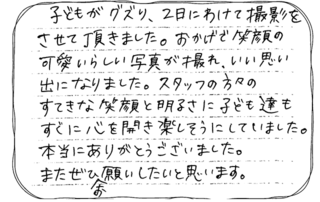 子どもがグズり、2日にわけて撮影を
させて頂きました。おかげで笑顔の
可愛いらしい写真が撮れ、いい思い
出になりました。スタッフの方々の
すてきな笑顔と明るさに子ども達も
すぐに心を開き楽しそうにしていました。
本当にありがとうございました。
またぜひお願いしたいと思います。